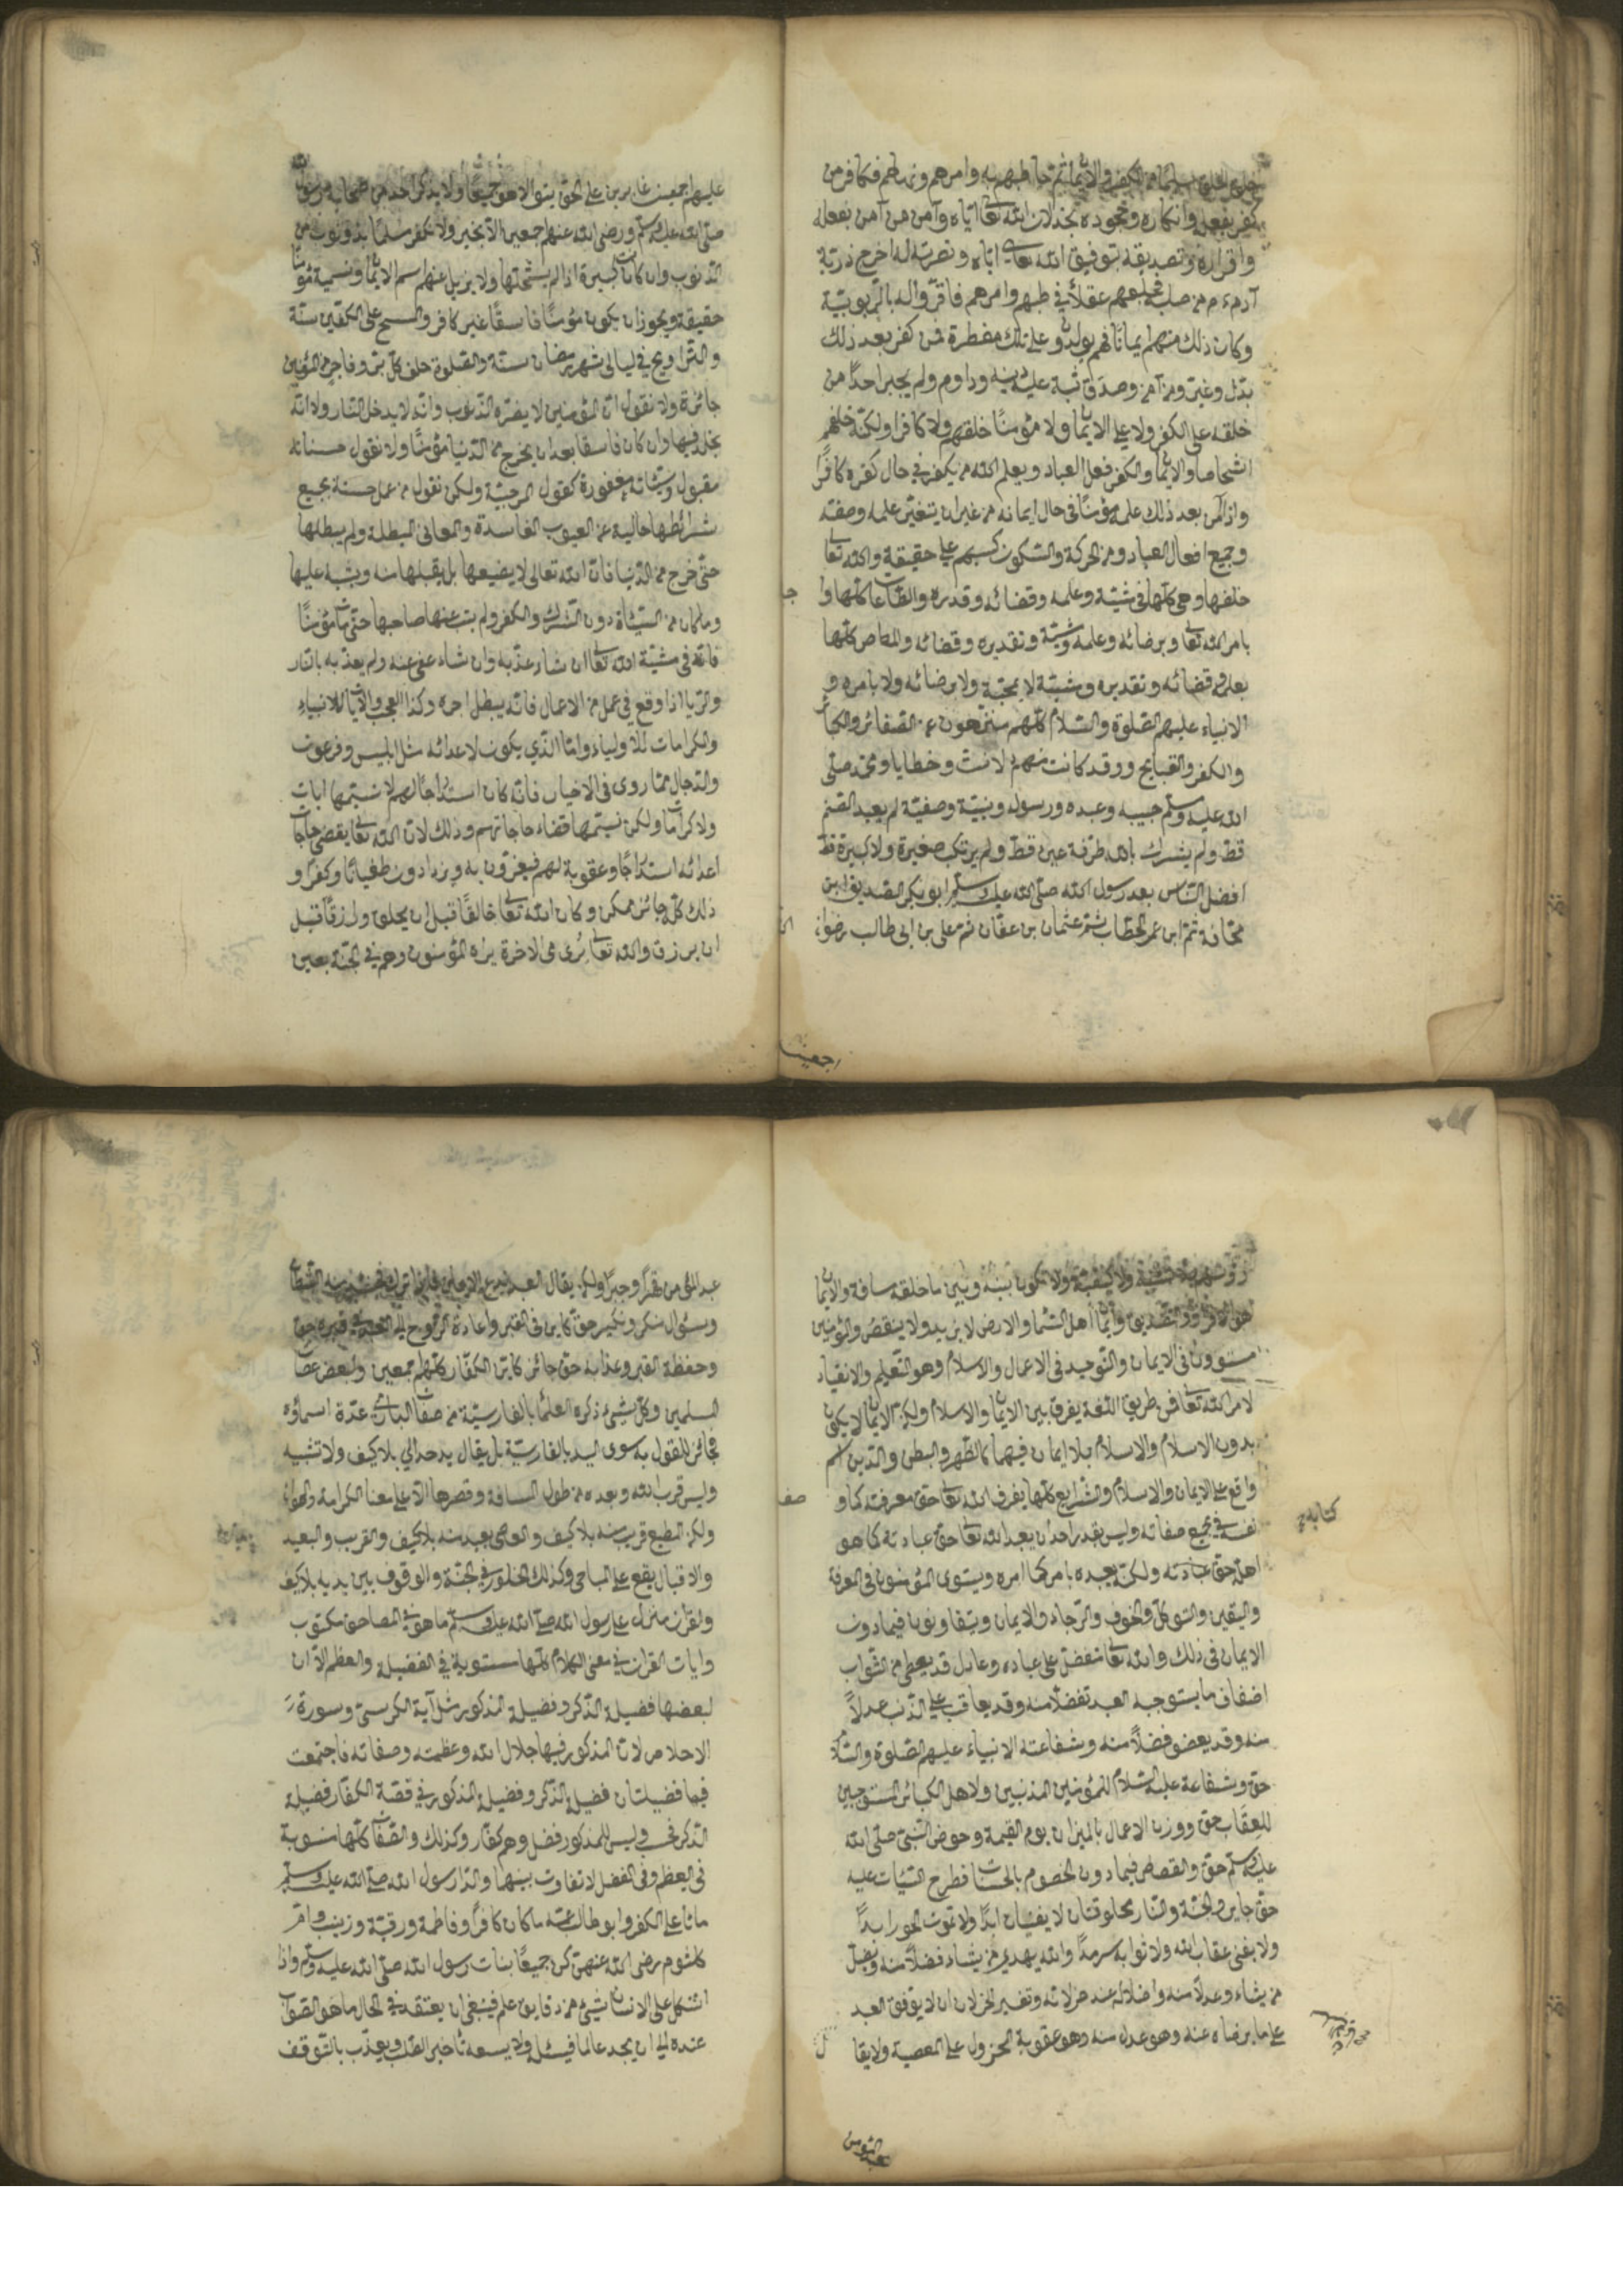 خلق الخلق سليما من الكفر والايمان ثم خاطبهم وامرهم ونهاهم فكفر من
كفر بفعله وانكاره وجحوده بخذلان الله تعا اياه وآمن من آمن بفعله
واقراره وتصديقه بتوفيق الله تعالى اياه ونصرته له اخرج ذرية
آدم عم من صلبه فجعلهم عقلاً فخاطبهم وامرهم فاقروا له بالربوبية
وكان ذلك منهم ايمانا فهم يولدون على تلك الفطرة فمن كفر بعد ذلك
بدل وغير ومن آمن وصدق ثبت عليه دينه وداوم ولم يجبر احدًا من
خلقه على الكفر ولا على الايمان ولا مؤمنًا خلقهم ولا كافرا ولكنه خلقهم
اشخاصا والايمان والكفر فعل العباد ويعلم الله من يكفر في حال كفره كافرًا
واذا آمن بعد ذلك علمه مؤمنًا في حال ايمانه من غير ان يتغير علمه وصفته
وجميع افعال العباد من الحركة والسكون كسبهم على حقيقة والله تعا
خلقها وهي كلها في مشيته وعلمه وقضائه وقدره والطاعات كلها
بامر الله تعا وبرضائه وعلمه ومشيته وتقديره وقضائه والمعاصي كلها
بعلمه وقضائه وتقديره ومشيته لا بمحبته ولا برضائه ولا بامره و
الانبياء عليهم الصلوة والسلام كلهم منزهون عن الصغائر والكبائر
والكفر والقبايح وقد كانت منهم زلات وخطايا ومحمد صلى
الله عليه وسلم حبيبه وعبده ورسوله ونبيه وصفيه لم يعبد الصنم
قط ولم يشرك بالله طرفة عين قط ولم يرتكب صغيرة ولا كبيرة قط
افضل الناس بعد رسول الله صلى الله عليه وسلم ابو بكر الصديق ابن
قحافة ثم ابن عمر الخطاب ثم عثمان بن عفان ثم علي بن ابي طالب رضوان
اجمعين
عليهم اجمعين غابرين على الحق يتولاهم جميعًا ولا يذكر احد من صحابه رسول الله
صلى الله عليه وسلم ورضى الله عنهم اجمعين الا بخير ولا نكفر مسلمًا بذنوب من
الذنوب وان كانت كبيرة اذا لم يستحلها ولا يزيل عنه اسم الايمان ونسميه مؤمنًا
حقيقة ويجوز ان يكون مؤمنًا فاسقًا غير كافر والمسح على الخفين سنة
والتراويح في ليالى شهر رمضان سنة والصلوة خلف كل بر وفاجر من المؤمنين
جائزة ولا نقول ان المؤمنين لا يضره الذنوب وانه لا يدخل النار ولا انه
يخلد فيها وان كان فاسقا بعد ان يخرج من الدنيا مؤمنًا ولا نقول حسناته
مقبول وسيئاته مغفورة كقول المرجئة ولكن نقول من عمل حسنة بجميع
شرائطها خالية عن العيوب الفاسدة والمعانى المبطلة ولم يبطلها
حتى خرج من الدنيا فان الله تعالى لا يضيعها بل يقبلها منه ويثيبه عليها
وما كان من السيئات دون الشرك والكفر ولم يتب عنها صاحبها حتى مات مؤمنًا
فانه في مشية الله تعا ان شاء عذبه وان شاء عفى عنه ولم يعذبه بالنار
والريا اذا وقع في عمل من الاعمال فانه يبطل اجره وكذا العجب والايات للانبياء
والكرامات للاولياء وامّا الذي يكون لاعدائه مثل ابليس وفرعون
والدجال مما روى في الاخبار فانه كان استدراجًا لهم لا نسميها ايات
ولا كرامات ولكن نسميها قضاء حاجاتهم وذلك لان الله تعا يقضى حاجات
اعدائه استدراجًا وعقوبة لهم فيغترون به ويزدادون طغيانًا وكفرًا و
ذلك كله جائز ممكن وكان الله تعا خالقًا قبل ان يخلق ورازقًا قبل
ان يرزق والله تعا يُرى في الاخرة يراه المؤمنون وهم في الجنة بعين
رؤسهم بلا تشبيه ولا كيفية ولا تكون بينه وبين ما خلقه مسافة والايمان
هو الاقرار والتصديق وايمان اهل السماء والارض لا يزيد ولا ينقص والمؤمنين
مستوون في الايمان والتوحيد في الاعمال والاسلام وهو التعليم والانقياد
لامر الله تعا فمن طريق اللغة يفرق بين الايمان والاسلام ولكن الايمان لا يكون
بدون الاسلام والاسلام بلا ايمان فهما كالظهر والبطن والدين اسم
واقع على الايمان والاسلام والشرايع كلها يعرف الله تعا حق معرفته كما و
نفسه في جميع صفاته وليس يقدر احد ان يعبد الله تعا حق عبادته كما هو
كتابه
اهل حق عبادته ولكن يعبده بامر كما امره ويستوى المؤمنون في المعرفة
واليقين والتوكل والخوف والرجاء والايمان ويتفاوتون فيما دون
الايمان في ذلك والله تعا متفضل على عباده وعادل قد يعطى من الثواب
اضعاف ما يستوجبه العبد تفضلاً منه وقد يعاقب على الذنب عدلاً
منه وقد يعفو فضلاً منه وشفاعته الانبياء عليهم الصلوة والسلام
حق وشفاعة عليه السلام للمؤمنين المذنبين ولاهل الكبائر المستوجبين
للعقاب حق ووزن الاعمال بالميزان يوم القيمة وحوض النبي صلى الله
عليه وسلم حق والقصاص فيما دون الخصوم بالحسنات فطرح السيئات عليه
حق جاير والجنة والنار مخلوقتان لا يفنيان ابدًا ولا تموت الحور ابدًا
ولا يفنى عقاب الله ولا ثوابه سرمدًا والله يهدى من يشاء فضلاً منه ويضل
من يشاء وعدلاً منه واضلاله عند خزلانه وتفسير الخزلان ان لا يوفق العبد
على ما يرضاه عنه وهو عدل منه وهو عقوبة المخزول على المعصية ولا يقا
عبد المؤمن
عبد المؤمن قهرًا وجبرًا ولكن يقال العبد يدع الايمان فاذا تركه يسلبه الشيطان
وسؤال منكر ونكير حق كاين في القبر واعادة الروح الى العبد في قبره حق
وحفظة القبر وعذابه حق جائز كاين الكفار كلهم اجمعين ولبعض عصاة
المسلمين وكل شيء ذكره العلماء بالفارسية من صفات البارى عزت اسماؤه
فجائز للقول به سوى اليد بالفارسية بل يقال يد خداي بلا كيف ولا تشبيه
وليس قرب الله وبعده من طول المسافة وقصرها الا على معنا الكرامة والهوان
ولكن المطيع قريب منه بلا كيف والعاصى بعيد منه بلا كيف والقرب والبعيد
والاقبال يقع على المناجى وكذلك الجلوس في الجنة والوقوف بين يديه بلا كيف
والقرآن منزل على رسول الله صلى الله عليه وسلم ما هو في المصاحف مكتوب
وايات القرآن في معنى الكلام كلها مستوية في الفضيلة والعظم الا ان
لبعضها فضيلة الذكر وفضيلة المذكور مثل آية الكرسى وسورة
الاخلاص لان المذكور فيها جلال الله وعظمته وصفاته فاجتمعت
فيها فضيلتان فضيلة الذكر وفضيلة المذكور في قصة الكفار فضيلة
الذكر فحسب وليس للمذكور فضل وهم كفار وكذلك والصفات كلها مستوية
في العظم وفى الفضل لا تفاوت بينها والدا رسول الله صلى الله عليه وسلم
ماتا على الكفر وابو طالب عمه مات كافرًا وفاطمة ورقية وزينب وام
كلثوم رضى الله عنهن كن جميعًا بنات رسول الله صلى الله عليه وسلم واذا
اشكل على الانسان شيء من دقايق علم فينبغى ان يعتقد في الحال ما هو الصواب
عنده الى ان يجد عالما فيسئله ولا يسعه تأخير الطلب ويعذب بالتوقف